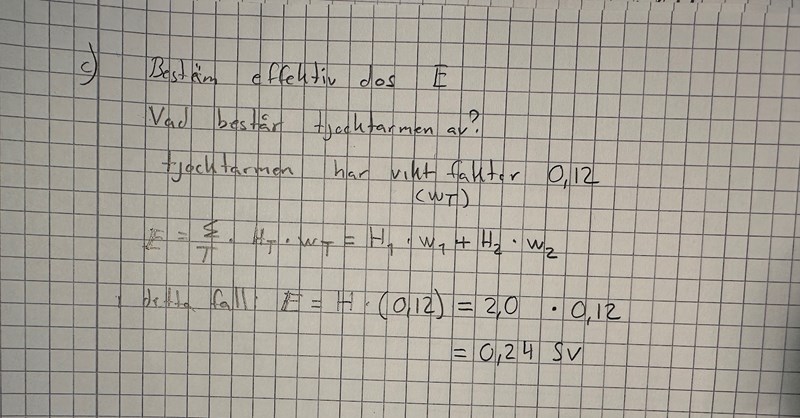 c) Bestäm effektiv dos E
Vad består tjocktarmen av?
tjocktarmen har vikt faktor 0,12
(WT)
E = Σ/T · HT · WT = H1 · W1 + H2 · W2
i detta fall: E = H · (0,12) = 2,0 · 0,12
= 0,24 SV